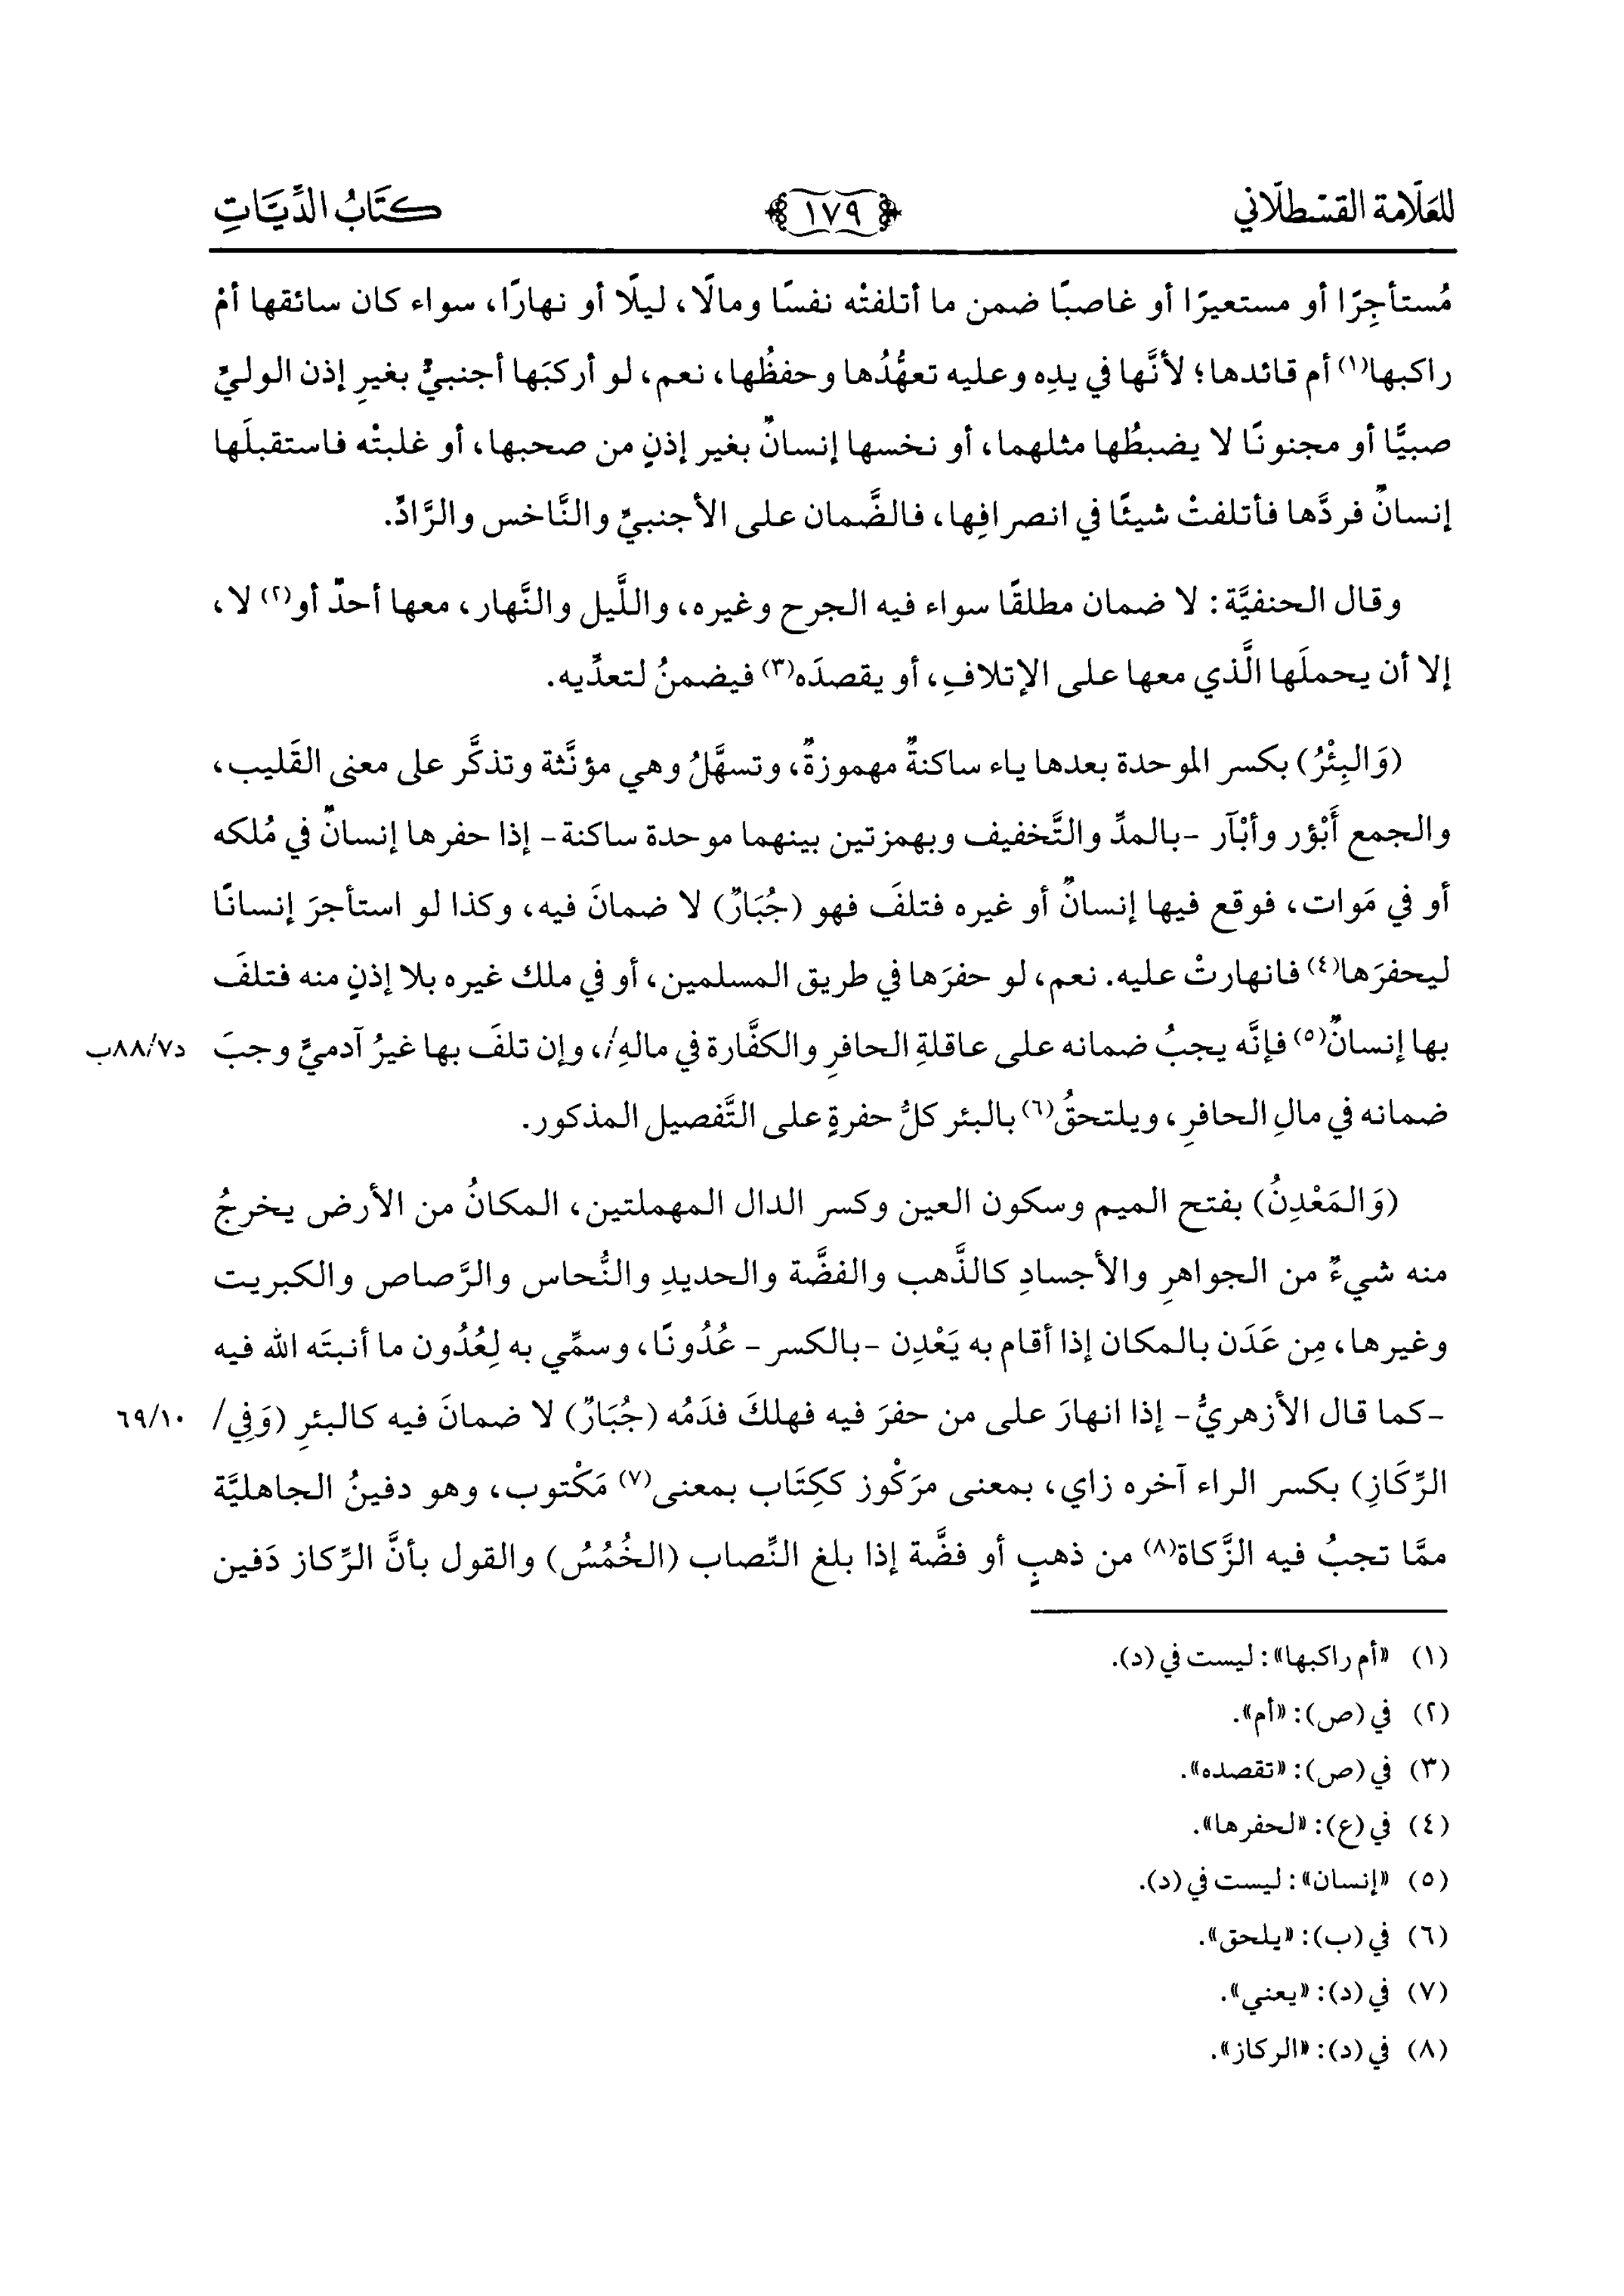 للعلّامة القسْطلّاني ١٧٩ كتَابُ الدِّيَاتِ
مُستأجِرًا أو مستعيرًا أو غاصبًا ضمن ما أتلفتْه نفسًا ومالًا، ليلًا أو نهارًا، سواء كان سائقها أمْ
راكبها(١) أم قائدها؛ لأنَّها في يدِه وعليه تعهُّدُها وحفظُها، نعم، لو أركبَها أجنبيٌّ بغيرِ إذن الوليِّ
صبيًّا أو مجنونًا لا يضبطُها مثلهما، أو نخسها إنسانٌ بغير إذنٍ من صحبها، أو غلبتْه فاستقبلَها
إنسانٌ فردَّها فأتلفتْ شيئًا في انصرافِها، فالضَّمان على الأجنبيِّ والنَّاخس والرَّادِّ.
وقال الحنفيَّة: لا ضمان مطلقًا سواء فيه الجرح وغيره، واللَّيل والنَّهار، معها أحدٌ أو(٢) لا،
إلا أن يحملَها الَّذي معها على الإتلافِ، أو يقصدَه(٣) فيضمنُ لتعدِّيه.
(وَالبِئْرُ) بكسر الموحدة بعدها ياء ساكنةٌ مهموزةٌ، وتسهَّلُ وهي مؤنَّثة وتذكَّر على معنى القَليب،
والجمع أَبْؤر وأبْآر -بالمدِّ والتَّخفيف وبهمزتين بينهما موحدة ساكنة- إذا حفرها إنسانٌ في مُلكه
أو في مَوات، فوقع فيها إنسانٌ أو غيره فتلفَ فهو (جُبَارٌ) لا ضمانَ فيه، وكذا لو استأجرَ إنسانًا
ليحفرَها(٤) فانهارتْ عليه. نعم، لو حفرَها في طريق المسلمين، أو في ملك غيره بلا إذنٍ منه فتلفَ
بها إنسانٌ(٥) فإنَّه يجبُ ضمانه على عاقلةِ الحافرِ والكفَّارة في مالهِ/، وإن تلفَ بها غيرُ آدميٍّ وجبَ د٨٨/٧ب
ضمانه في مالِ الحافرِ، ويلتحقُ(٦) بالبئر كلُّ حفرةٍ على التَّفصيل المذكور.
(وَالمَعْدِنُ) بفتح الميم وسكون العين وكسر الدال المهملتين، المكانُ من الأرض يخرجُ
منه شيءٌ من الجواهرِ والأجسادِ كالذَّهب والفضَّة والحديدِ والنُّحاس والرَّصاص والكبريت
وغيرها، مِن عَدَن بالمكان إذا أقام به يَعْدِن -بالكسر- عُدُونًا، وسمِّي به لِعُدُون ما أنبتَه الله فيه
-كما قال الأزهريُّ- إذا انهارَ على من حفرَ فيه فهلكَ فدَمُه (جُبَارٌ) لا ضمانَ فيه كالبئرِ (وَفِي/ ٦٩/١٠
الرِّكَازِ) بكسر الراء آخره زاي، بمعنى مرَكْوز ككِتَاب بمعنى(٧) مَكْتوب، وهو دفينُ الجاهليَّة
ممَّا تجبُ فيه الزَّكاة(٨) من ذهبٍ أو فضَّة إذا بلغ النِّصاب (الخُمُسُ) والقول بأنَّ الرِّكاز دَفين
(١) «أم راكبها»: ليست في (د).
(٢) في (ص): «أم».
(٣) في (ص): «تقصده».
(٤) في (ع): «لحفرها».
(٥) «إنسان»: ليست في (د).
(٦) في (ب): «يلحق».
(٧) في (د): «يعني».
(٨) في (د): «الركاز».